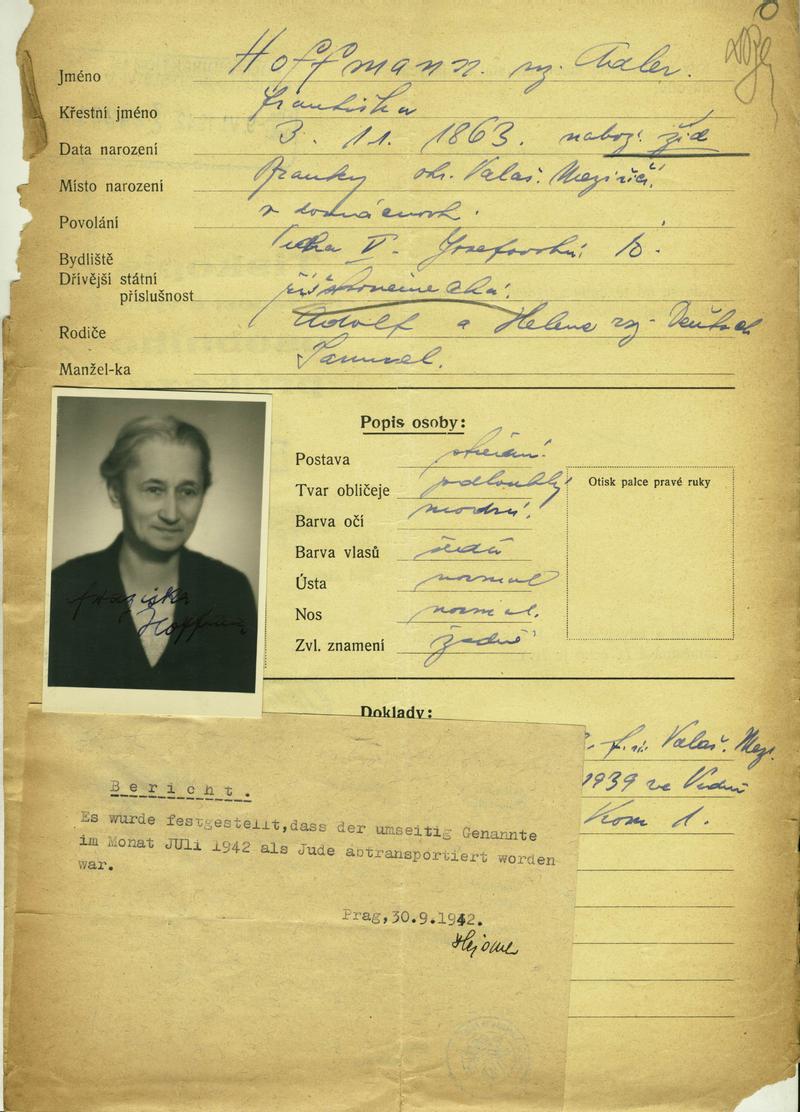 Jméno Hoffmann. roz. Adler.
Křestní jméno Františka
Data narození 3. 11. 1863. nábož. žid
Místo narození Branky okr. Valaš. Meziříčí.
Povolání v domácnosti.
Bydliště Praha V. Josefovská 10.
Dřívější státní
příslušnost říškoněmecká.
Rodiče Adolf a Helene roz. Deutsch
Manžel-ka Samuel.
Popis osoby:
Postava střední.
Tvar obličeje podlouhlý
Barva očí modrá.
Barva vlasů šedá
Ústa normal
Nos normal.
Zvl. znamení žádné
Otisk palce pravé ruky
Franziska
Hoffmann
Doklady:
Valaš. Mez.
1939 ve Vídni
Kom 1.
Bericht.
Es wurde festgestellt,dass der umseitig Genannte
im Monat JULI 1942 als Jude abtransportiert worden
war.
Prag,30.9.1942.